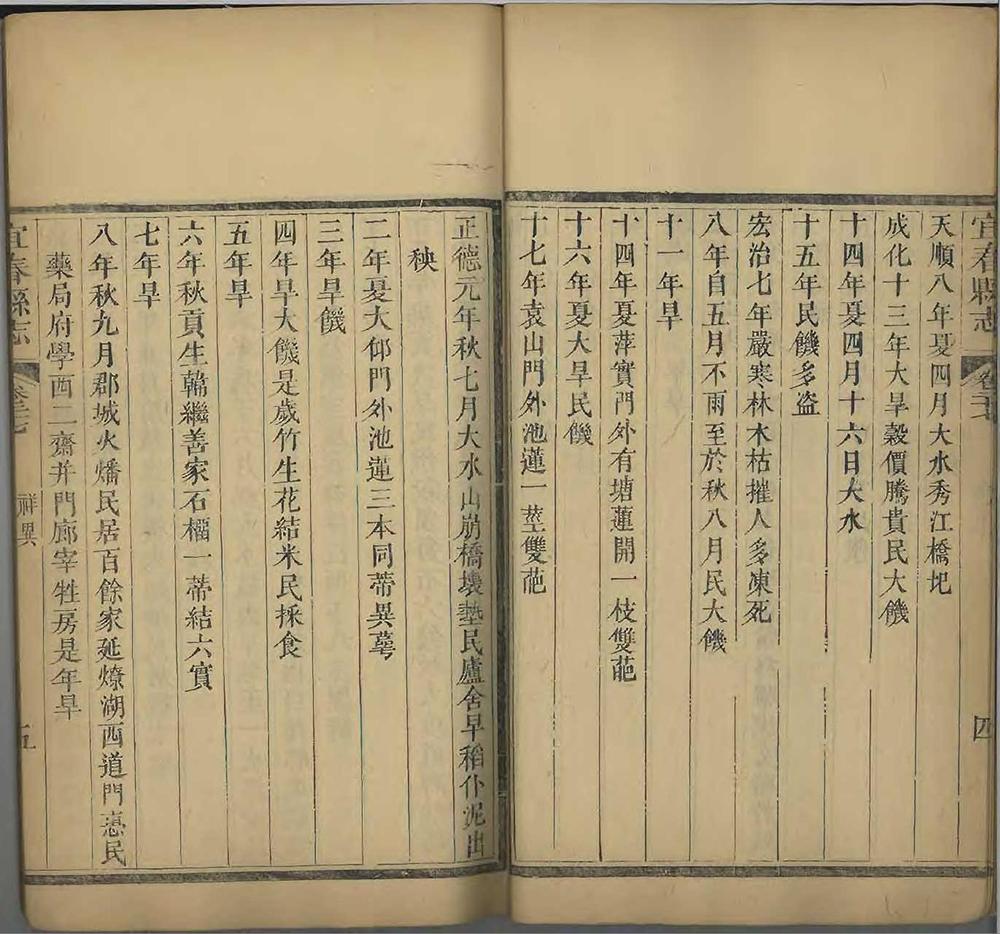 宜春縣志
四
天順八年夏四月大水秀江橋圯
成化十三年大旱穀價騰貴民大饑
十四年夏四月十六日大水
十五年民饑多盗
宏治七年嚴寒林木枯摧人多凍死
八年自五月不雨至於秋八月民大饑
十一年旱
十四年夏萍實門外有塘蓮開一枝雙葩
十六年夏大旱民饑
十七年袁山門外池蓮一莖雙葩
正德元年秋七月大水山崩橋壊墊民廬舍早稻仆泥出
秧
二年夏大仰門外池蓮三本同蒂異萼
三年旱饑
四年旱大饑是歲竹生花結米民採食
五年旱
六年秋貢生韓繼善家石榴一蒂結六實
七年旱
八年秋九月郡城火燔民居百餘家延燎湖西道門惠民
藥局府學西二齋并門廊宰牲房是年旱
宜春縣志
祥異
五